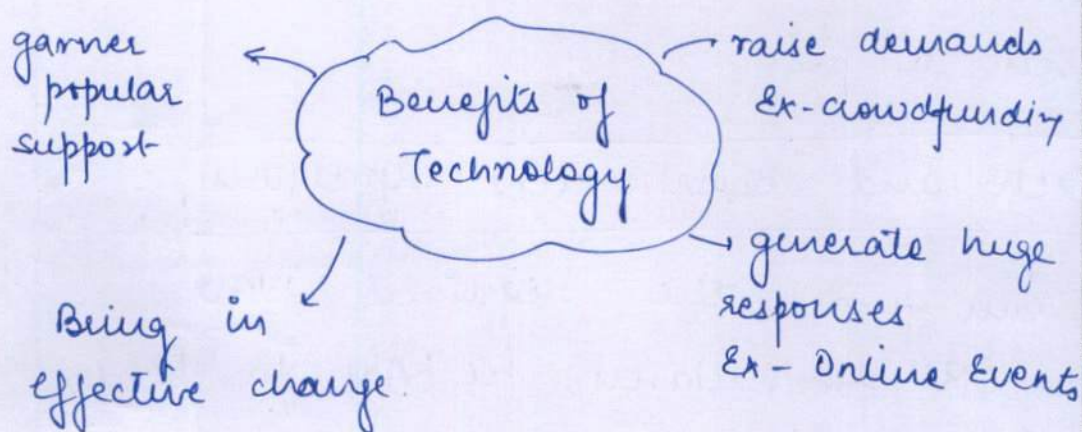 garner
popular
support
Benefits of
Technology
raise demands
Ex-crowdfunding
generate huge
responses
Ex- Online Events
Being in
effective change